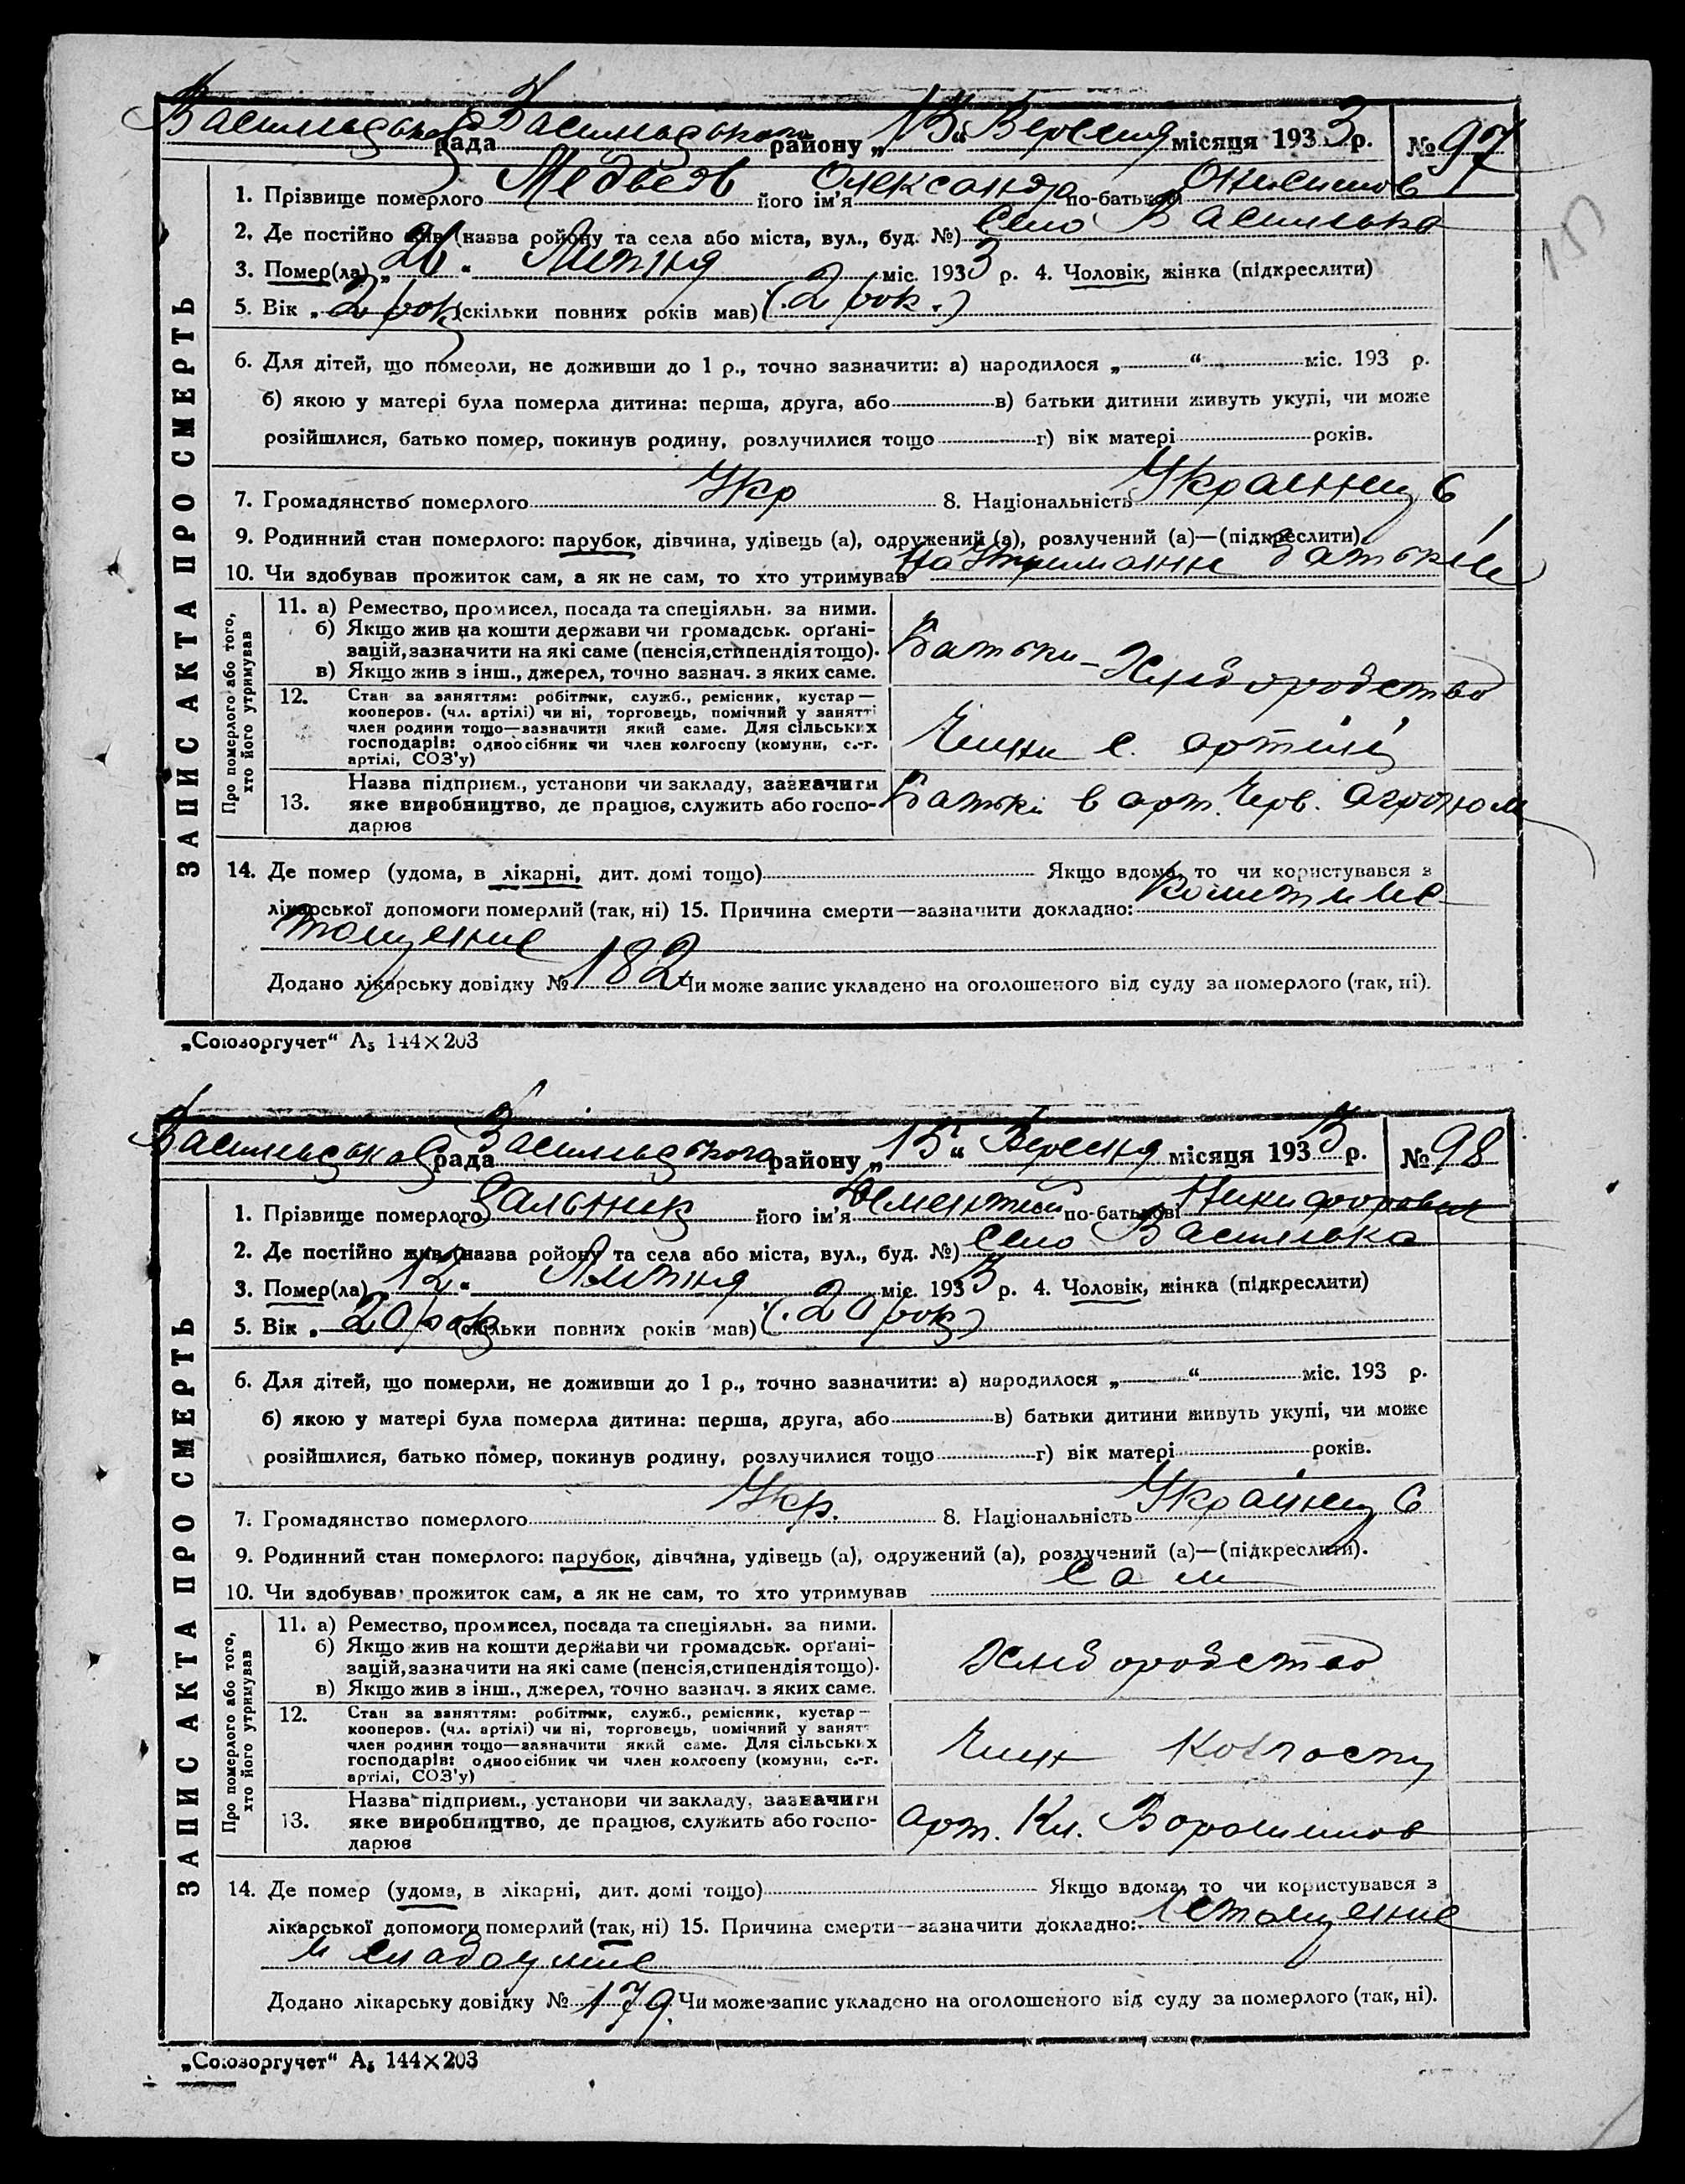 Васильевської рада Васильевського району „13“ Вересня місяця 1933 р. № 97
1. Прізвище померлого Медведь його ім'я Олександр по-батькові Онисимов
2. Де постійно жив (назва ройону та села або міста, вул., буд. №) село Василька
3. Помер(ла) „26“ Липня міс. 1933 р. 4. Чоловік, жінка (підкреслити)
5. Вік „2 рок (скільки повних років мав) (2 рок.)
6. Для дітей, що померли, не доживши до 1 р., точно зазначити: а) народилося „ “ міс. 193 р.
б) якою у матері була померла дитина: перша, друга, або в) батьки дитини живуть укупі, чи може
розійшлися, батько помер, покинув родину, розлучилися тощо г) вік матері років.
7. Громадянство померлого Укр 8. Національність Українец 6
9. Родинний стан померлого: парубок, дівчина, удівець (а), одружений (а), розлучений (а)—(підкреслити).
10. Чи здобував прожиток сам, а як не сам, то хто утримував На утриманні батьків
ЗАПИС АКТА ПРО СМЕРТЬ
Про померлого або того, хто його утримував
11. а) Ремество, промисел, посада та спеціяльн. за ними.
б) Якщо жив на кошти держави чи громадськ. орґані-
зацій, зазначити на які саме (пенсія, стипендія тощо).
в) Якщо жив з інш., джерел, точно зазнач. з яких саме.
Батьки – Хліборобство
12. Стан за заняттям: робітник, служб., ремісник, кустар—
кооперов. (чл. артілі) чи ні, торговець, помічний у занятті
член родини тощо—зазначити який саме. Для сільських
господарів: одноосібник чи член колгоспу (комуни, с.-г.
артілі, СОЗ'у)
Члени с. артілі
13. Назва підприєм., установи чи закладу, зазначити
яке виробництво, де працюв, служить або госпо-
дарюв
Батькі в арт. Черв. агроном
14. Де помер (удома, в лікарні, дит. домі тощо) Якщо вдома, то чи користувався з
лікарської допомоги померлий (так, ні) 15. Причина смерти—зазначити докладно:
тощение
Додано лікарську довідку № 182 Чи може запис укладено на оголошеного від суду за померлого (так, ні).
„Союзоргучет“ А₅ 144×203
Васильевської рада Васильевського району „13“ Вересня місяця 1933 р. № 98
1. Прізвище померлого Сальник його ім'я Дементий по-батькові Никифорович
2. Де постійно жив (назва ройону та села або міста, вул., буд. №) село Василька
3. Помер(ла) „12“ Липня міс. 1933 р. 4. Чоловік, жінка (підкреслити)
5. Вік „20 рок (скільки повних років мав) (20 рок)
6. Для дітей, що померли, не доживши до 1 р., точно зазначити: а) народилося „ “ міс. 193 р.
б) якою у матері була померла дитина: перша, друга, або в) батьки дитини живуть укупі, чи може
розійшлися, батько помер, покинув родину, розлучилися тощо г) вік матері років.
7. Громадянство померлого Укр. 8. Національність Українец 6
9. Родинний стан померлого: парубок, дівчина, удівець (а), одружений (а), розлучений (а)—(підкреслити).
10. Чи здобував прожиток сам, а як не сам, то хто утримував сам
ЗАПИС АКТА ПРО СМЕРТЬ
Про померлого або того, хто його утримував
11. а) Ремество, промисел, посада та спеціяльн. за ними.
б) Якщо жив на кошти держави чи громадськ. орґані-
зацій, зазначити на які саме (пенсія, стипендія тощо).
в) Якщо жив з інш., джерел, точно зазнач. з яких саме.
Хліборобство
12. Стан за заняттям: робітник, служб., ремісник, кустар—
кооперов. (чл. артілі) чи ні, торговець, помічний у занятті
член родини тощо—зазначити який саме. Для сільських
господарів: одноосібник чи член колгоспу (комуни, с.-г.
артілі, СОЗ'у)
Член Колгоспу
13. Назва підприєм., установи чи закладу, зазначити
яке виробництво, де працюв, служить або госпо-
дарюв
арт. Кл. Ворошилов
14. Де помер (удома, в лікарні, дит. домі тощо) Якщо вдома, то чи користувався з
лікарської допомоги померлий (так, ні) 15. Причина смерти—зазначити докладно: Истощение
и слабоумие
Додано лікарську довідку № 179. Чи може запис укладено на оголошеного від суду за померлого (так, ні).
„Союзоргучет“ А₅ 144×203